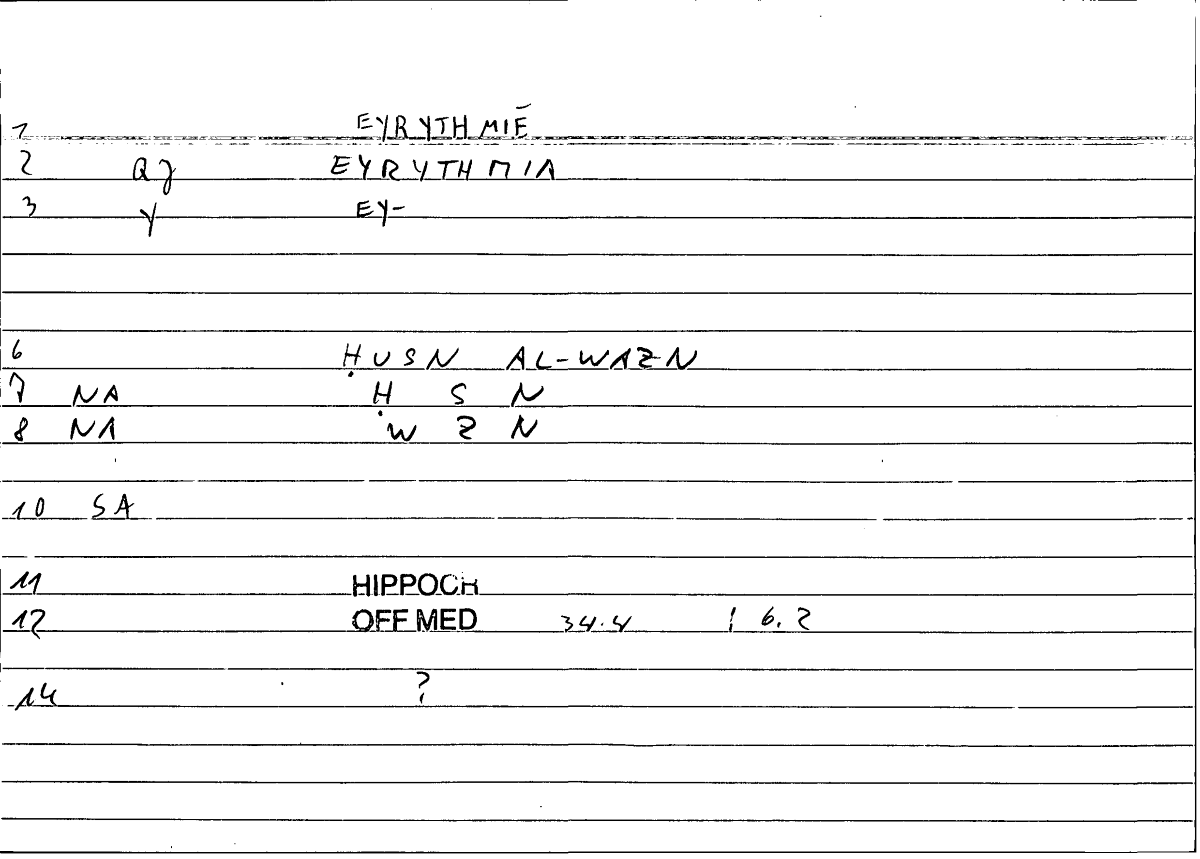 1 EYRYTHMIĒ
2 QJ EYRYTHMIA
3 Y EY-
6 ḤUSN AL-WAZN
7 NA Ḥ S N
8 NA W Z N
10 SA
11 HIPPOCR
12 OFF MED 34.4 | 6.2
14 ?